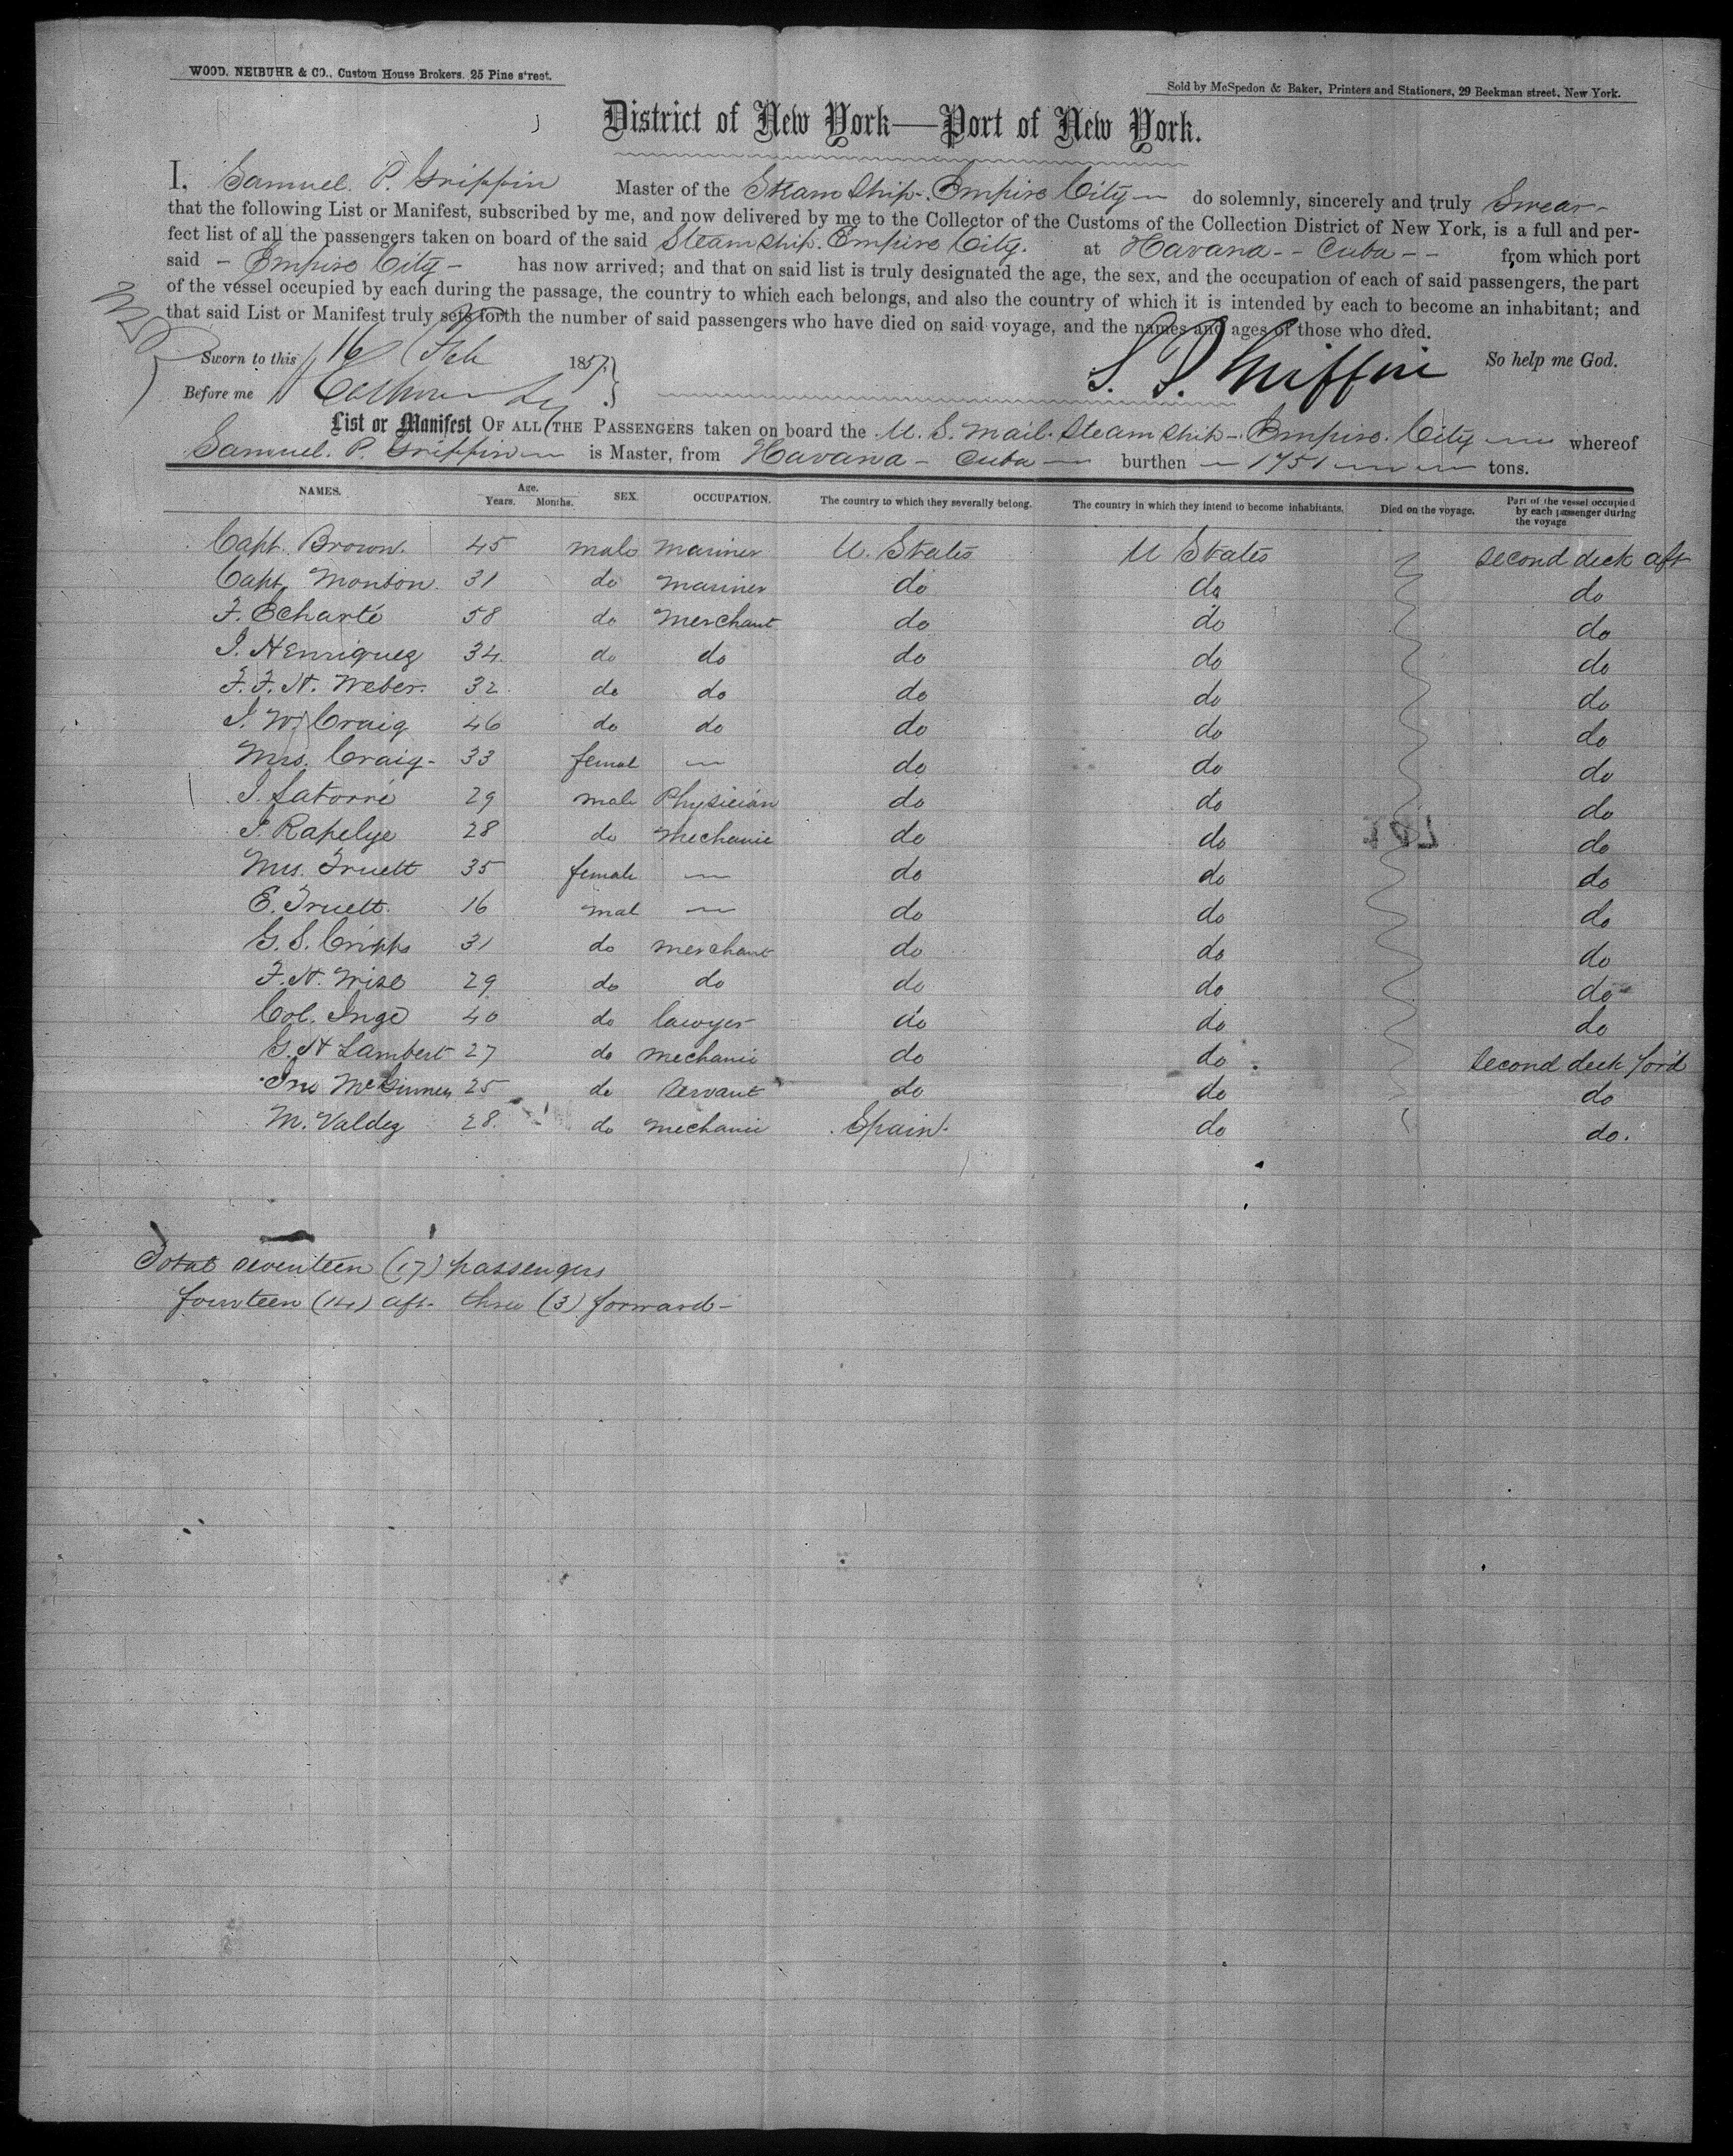 WOOD, NEIBUHR & CO., Custom House Brokers, 25 Pine street.
Sold by McSpedon & Baker, Printers and Stationers, 29 Beekman street, New York.
District of New York—Port of New York.
I, Samuel. P. Griffin Master of the Steam Ship - Empire City do solemnly, sincerely and truly Swear
that the following List or Manifest, subscribed by me, and now delivered by me to the Collector of the Customs of the Collection District of New York, is a full and per-
fect list of all the passengers taken on board of the said Steam Ship. Empire City. at Havana - - Cuba - - from which port
said - Empire City - has now arrived; and that on said list is truly designated the age, the sex, and the occupation of each of said passengers, the part
of the vessel occupied by each during the passage, the country to which each belongs, and also the country of which it is intended by each to become an inhabitant; and
that said List or Manifest truly sets forth the number of said passengers who have died on said voyage, and the names and ages of those who died.
Sworn to this 16 Feb 1857. S. P. Griffin So help me God.
Before me
List or Manifest OF ALL THE PASSENGERS taken on board the U. S. Mail. Steam Ship - Empire. City whereof
Samuel. P. Griffin is Master, from Havana - Cuba burthen - 1751 tons.
NAMES. Age. Years. Months. SEX. OCCUPATION. The country to which they severally belong. The country in which they intend to become inhabitants. Died on the voyage. Part of the vessel occupied by each passenger during the voyage
Capt. Brown. 45 male mariner U. States U States second deck aft
Capt. Monson. 31 do mariner do do do
F. Echarté 58 do merchant do do do
J. Henriquez 34. do do do do do
F. F. H. Weber. 32. do do do do do
J. W. Craig 46 do do do do do
Mrs. Craig - 33 femal — do do do
J. Latorré 29 male Physician do do do
J. Rapelye 28 do mechanic do do do
Mrs. Truett 35 female — do do do
E. Truett. 16 mal — do do do
G. S. Cripps 31 do merchant do do do
F. H. Wise 29 do do do do do
Col. Inge 40 do lawyer do do do
G. H Lambert 27 do mechanic do do second deck for'd
Jno McGinney 25 do servant do do do
M. Valdez 28. do mechanic Spain. do do.
Total seventeen (17) passengers
fourteen (14) aft - three (3) forward -